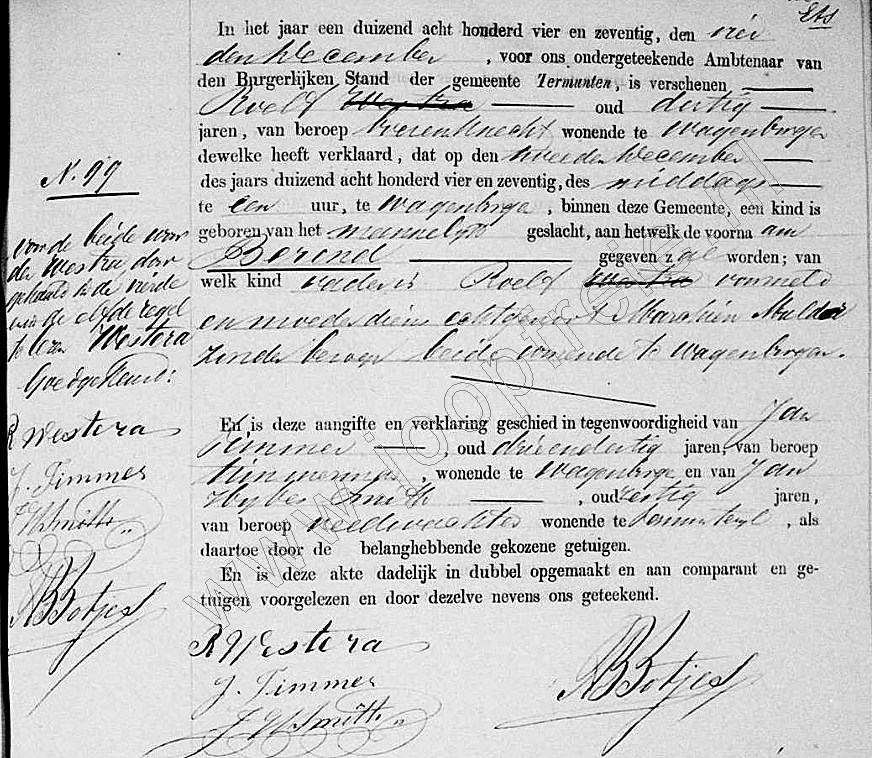 In het jaar een duizend acht honderd vier en zeventig, den vier
den December , voor ons ondergeteekende Ambtenaar van
den Burgerlijken Stand der gemeente Termunten, is verschenen
Roelf Westra oud dertig
jaren, van beroep boerenknecht wonende te Wagenborgen
dewelke heeft verklaard, dat op den tweeden December
des jaars duizend acht honderd vier en zeventig, des middags
te een uur, te Wagenborge , binnen deze Gemeente, een kind is
geboren van het mannelijk geslacht, aan hetwelk de voorna am
Berend gegeven zal worden; van
welk kind vader is Roelf Westra voormeld
en moeder diens echtgenoot Marchien Mulder
zonder beroep beide wonende te Wagenborgen.
En is deze aangifte en verklaring geschied in tegenwoordigheid van Jan
Timmer , oud drieendertig jaren, van beroep
timmerman , wonende te Wagenborge en van Jan
Smith , oud zestig jaren,
van beroep veldwachter wonende te Termunterzijl , als
daartoe door de belanghebbende gekozene getuigen.
En is deze akte dadelijk in dubbel opgemaakt en aan comparant en ge-
tuigen voorgelezen en door dezelve nevens ons geteekend.
R Westera
J. Timmer
J H Smith
Botjes
N. 99
voor de beide woor
den Westra door
gehaald in de vierde
en in de elfde regel
te lezen Westera
Goedgekeurd:
R Westera
J. Timmer
J H Smith
Botjes
www.jooptreke.nl